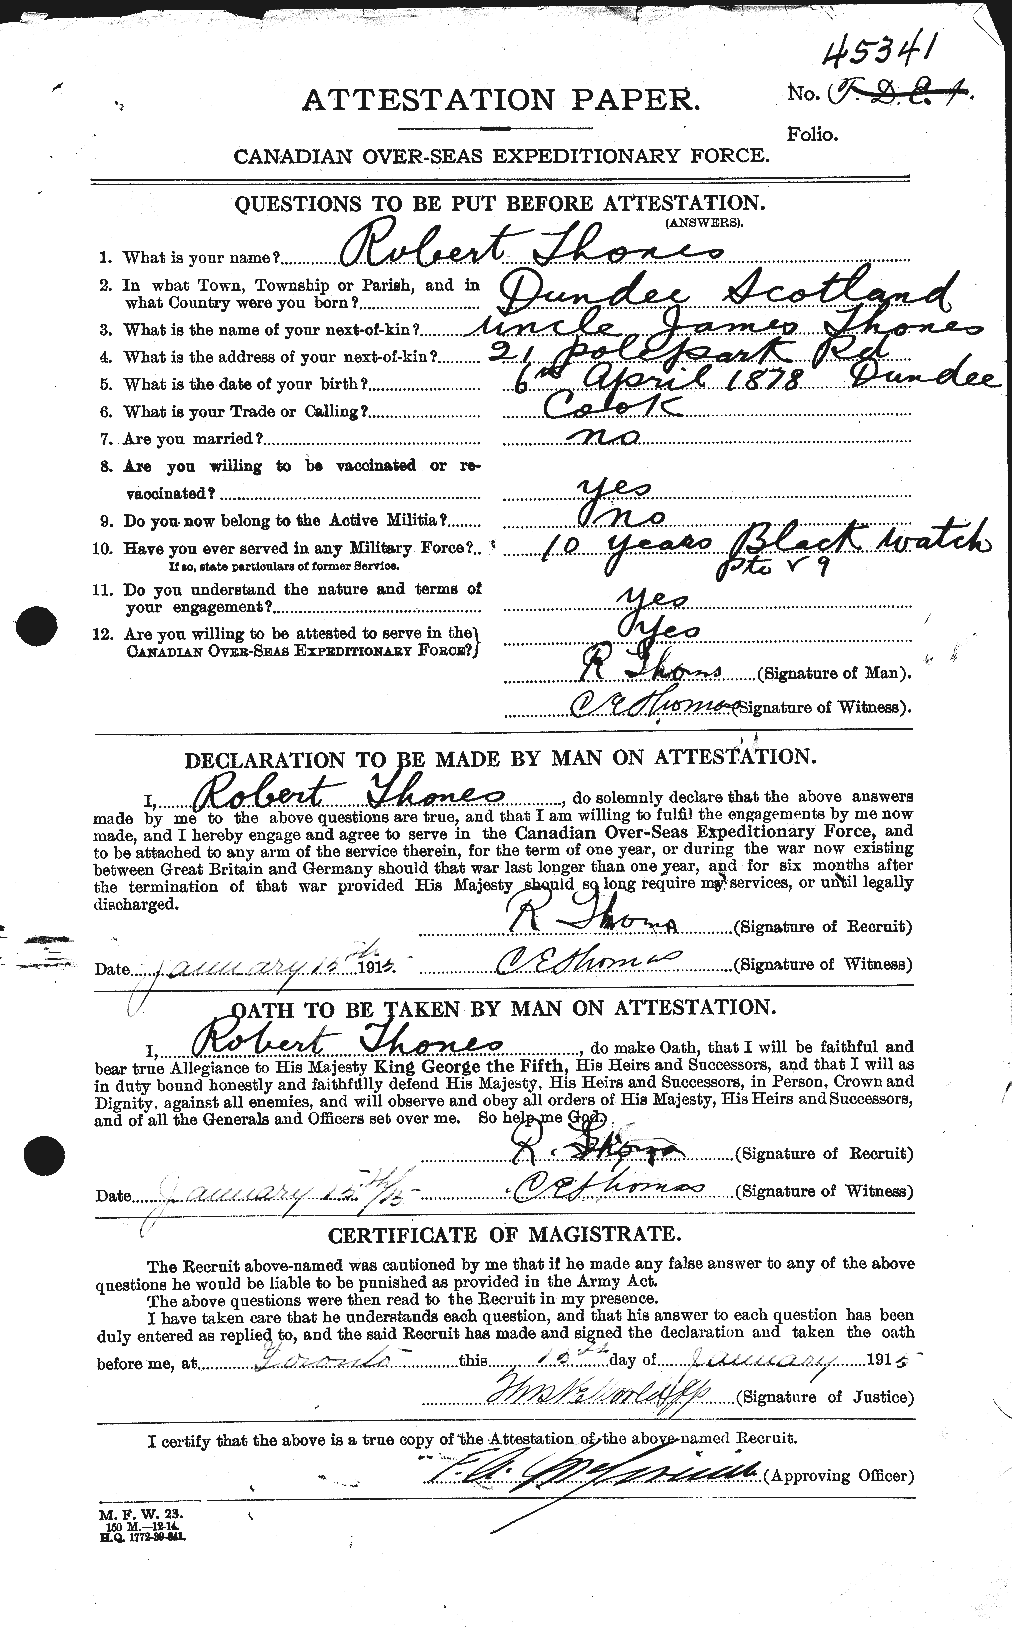 45341
ATTESTATION PAPER.
No. T. D. E. 1.
Folio.
CANADIAN OVER-SEAS EXPEDITIONARY FORCE.
QUESTIONS TO BE PUT BEFORE ATTESTATION.
(ANSWERS).
1. What is your name? Robert Thones
2. In what Town, Township or Parish, and in
what Country were you born? Dundee Scotland
3. What is the name of your next-of-kin? uncle James Thones
4. What is the address of your next-of-kin? 21 polepark Rd
5. What is the date of your birth? 6th April 1878 Dundee
6. What is your Trade or Calling? Cook
7. Are you married? no
8. Are you willing to be vaccinated or re-
vaccinated? yes
9. Do you now belong to the Active Militia? no
10. Have you ever served in any Military Force? 10 years Black watch
If so, state particulars of former Service. Pte v 9
11. Do you understand the nature and terms of
your engagement? yes
12. Are you willing to be attested to serve in the
CANADIAN OVER-SEAS EXPEDITIONARY FORCE? Yes
R Thons (Signature of Man).
C E Thomas (Signature of Witness).
DECLARATION TO BE MADE BY MAN ON ATTESTATION.
I, Robert Thones, do solemnly declare that the above answers
made by me to the above questions are true, and that I am willing to fulfil the engagements by me now
made, and I hereby engage and agree to serve in the Canadian Over-Seas Expeditionary Force, and
to be attached to any arm of the service therein, for the term of one year, or during the war now existing
between Great Britain and Germany should that war last longer than one year, and for six months after
the termination of that war provided His Majesty should so long require my services, or until legally
discharged.
R Thoms (Signature of Recruit)
Date January 15th 1915. C E Thomas (Signature of Witness)
OATH TO BE TAKEN BY MAN ON ATTESTATION.
I, Robert Thones, do make Oath, that I will be faithful and
bear true Allegiance to His Majesty King George the Fifth, His Heirs and Successors, and that I will as
in duty bound honestly and faithfully defend His Majesty, His Heirs and Successors, in Person, Crown and
Dignity, against all enemies, and will observe and obey all orders of His Majesty, His Heirs and Successors,
and of all the Generals and Officers set over me. So help me God.
R. (Signature of Recruit)
Date January 15th/15 C E Thomas (Signature of Witness)
CERTIFICATE OF MAGISTRATE.
The Recruit above-named was cautioned by me that if he made any false answer to any of the above
questions he would be liable to be punished as provided in the Army Act.
The above questions were then read to the Recruit in my presence.
I have taken care that he understands each question, and that his answer to each question has been
duly entered as replied to, and the said Recruit has made and signed the declaration and taken the oath
before me, at Toronto this 15th day of January 1915
(Signature of Justice)
I certify that the above is a true copy of the Attestation of the above-named Recruit.
(Approving Officer)
M. F. W. 23.
150 M.—12-14.
H.Q. 1772-39-841.